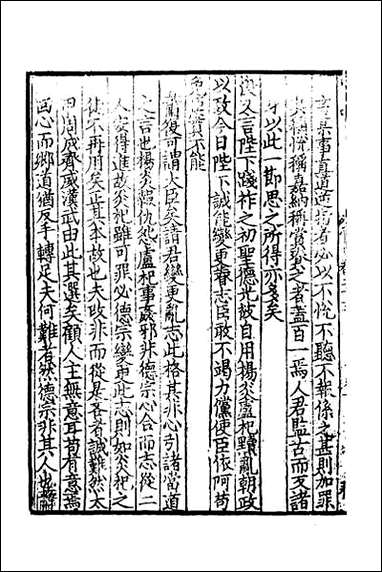 言某事直道逆指者必以不悅不聽不報係之甚則加罪
焉其稱悅稱嘉納稱賞發之者蓋百一焉人君監古而反諸
身以此一節思之所得亦多矣
復又言陛下踐祚之初聖德光被自用楊炎盧杞黷亂朝政
以致今日陛下誠能變更睿志臣敢不竭力儻使臣依阿苟
免臣實不能
蕭復可謂大臣矣請君變更亂志此格其非心引諸當道
之言也楊炎報仇怨盧杞事姦邪非德宗心合而志從二
人安得進故炎杞雖可罪必德宗變更此志則如炎杞之
徒不再用矣止其本故也夫改非而從是吝者誠難然太
甲周成齊威漢武由此其選矣顧人主無意耳苟有意焉
回心而鄉道猶反手轉足夫何難者然德宗非其人也